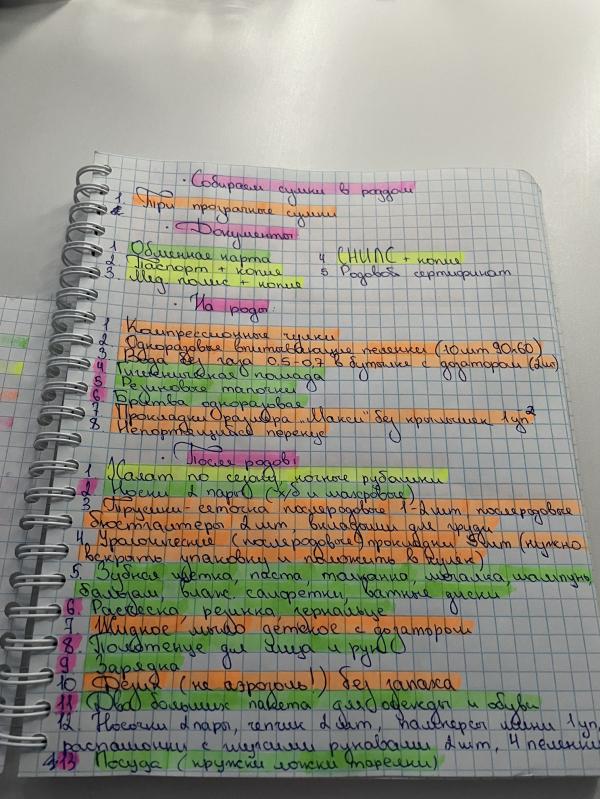 · Собираем сумки в роддом
1. Три прозрачные сумки
· Документы
1 Обменная карта
2 Паспорт + копия
3. Мед. полис + копия
4 СНИЛС + копия
5 Родовой сертификат
· На роды:
1 Компрессионные чулки
2 Одноразовые впитывающие пеленки (10 шт 90х60)
3 Вода без газа 0,5-0,7 в бутылке с дозатором (2шт)
4 Гигиеническая помада
5 Резиновые тапочки
6 Бритва одноразовая
7 Прокладки размера „Макси" без крылышек 1 уп
8 Непортящийся перекус
· После родов:
1 Халат по сезону, ночные рубашки
2 Носки 2 пары (х/б и махровые)
3 Трусики-сеточка послеродовые 1-2 шт послеродовые
бюстгалтеры 2 шт, вкладыши для груди
4. Урологические (послеродовые) прокладки шт (нужно
вскрыть упаковку и положить в кулек)
5. Зубная щетка, паста, мочалка, шампунь,
бальзам, салфетки, ватные диски
6. Расческа, резинка, зеркальце
7 Жидкое мыло детское с дозатором
8. Полотенце для лица и рук
9 Зарядка
10 Дезик (не аэрозоль!) без запаха
11 Два больших пакета для одежды и обуви
12 Носочки 2 пары, чепчик 2 шт, памперсы мини 1 уп,
распашонки с рукавами 2 шт, 4 пеленки
13 Посуда (кружки ложки тарелки)